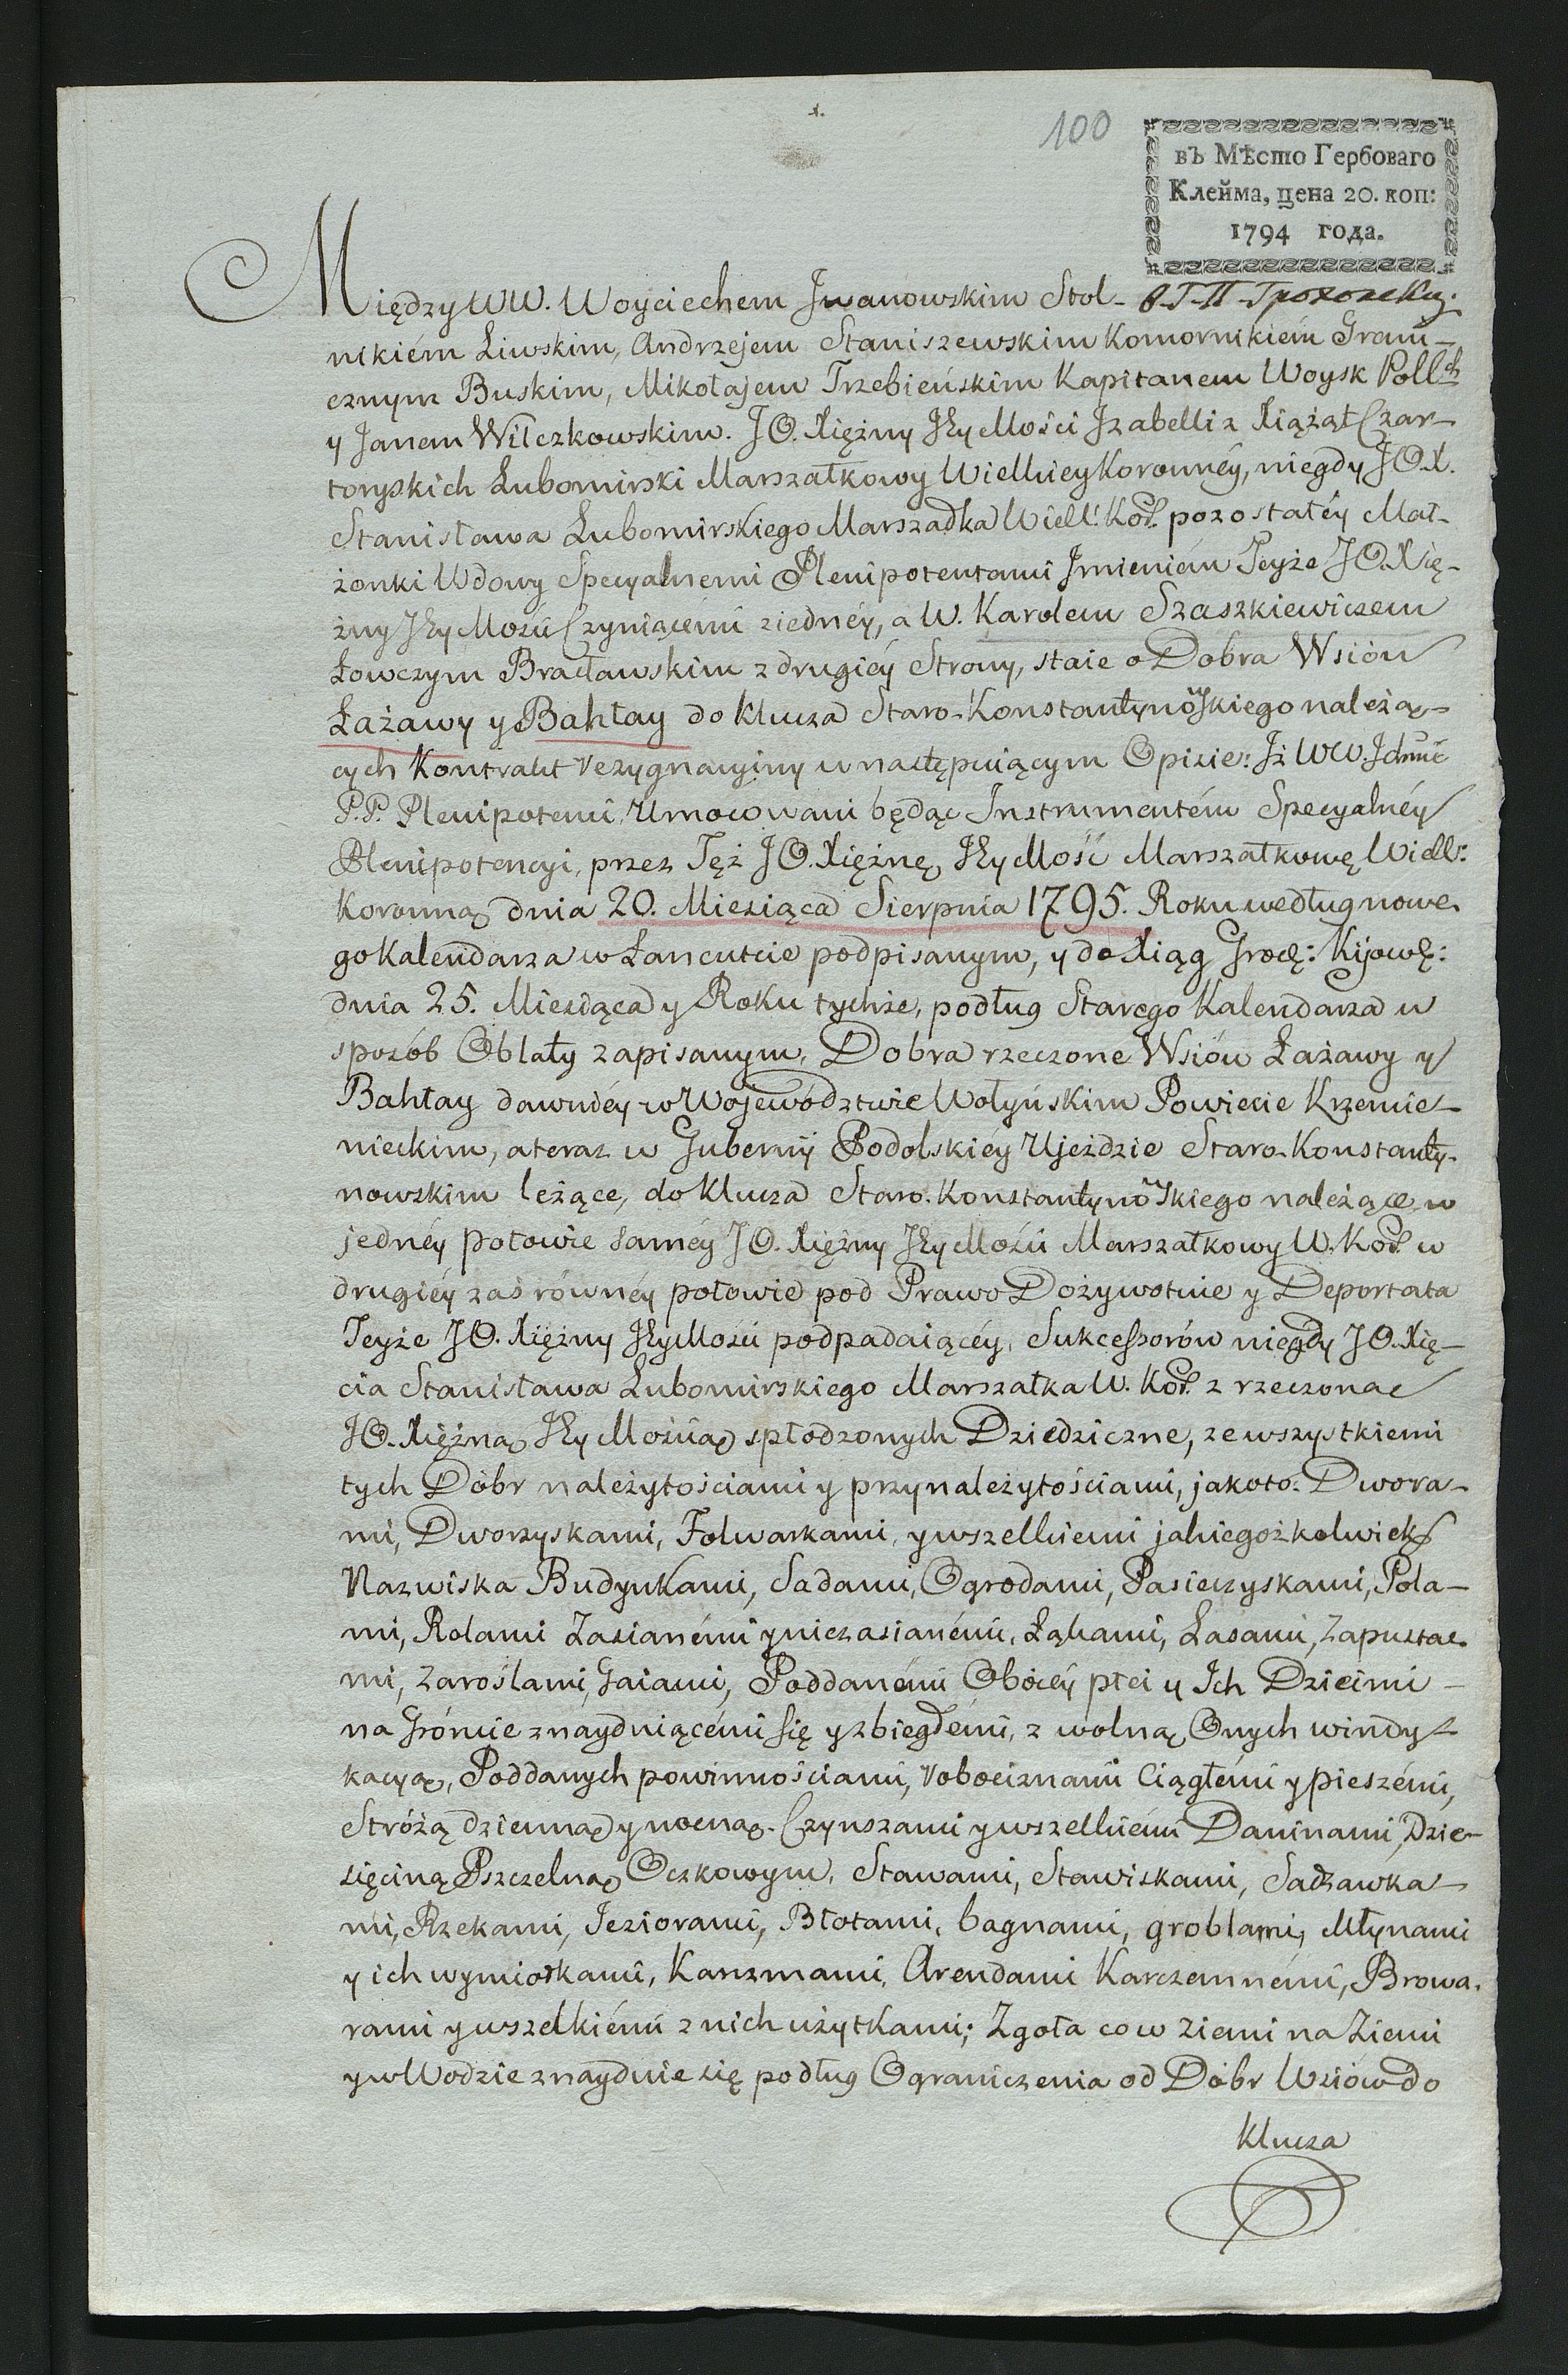 1.
100
въ Мѣсто Гербоваго
Клейма, цена 20. коп:
1794 года.
Między WW. Woyciechem Jwanowskim Stol-
nikiém Liwskim, Andrzejem Staniszewskim Komornikiém Grani-
cznym Buskim, Mikołajem Trzebieńskim Kapitanem Woysk Pollch
y Janem Wilczkowskim. JO. Xiężny JEy Mości Jzabelli z Xiążąt Czar-
toryskich Lubomirski Marszałkowy Wielkiey Koronnéy, niegdy JO.X.
Stanisława Lubomirskiego Marszałka Wiell: Kor. pozostałéy Mał-
żonki Wdowy Specyalnemi Plenipotentami Jmieniém Teyże JO. Xię-
żny JEy Mości Czyniącémi z iednéy, a W. Karolem Szaszkiewiczem
Łowczym Bracławskim z drugiéy Strony, staie o Dobra Wsiów
Łażawy y Bahłay do Klucza Staro-Konstantynowskiego należą-
cych Kontrakt rezygnacyiny w następuiącym Opisie: Jż WW. Jchmć
P.P. Plenipotenci, Umocowani będąc Instrumentém Specyalnéy
Plenipotencyi, przez Też JO. Xiężnę JEy Mość Marszałkowę Wiell:
Koronną dnia 20. Miesiąca Sierpnia 1795. Roku według nowe-
go Kalendarza w Łancucie podpisanym, y do Xiąg Grodz: Kijows:
dnia 25. Miesiąca y Roku tychże, podług Starego Kalendarza w
sposób Oblaty zapisanym, Dobra rzeczone Wsiów Łażawy y
Bahłay dawniéy w Województwie Wołyńskim Powiecie Krzemie-
nieckim, a teraz w Gubernij Podolskiéy Ujeździe Staro-Konstanty-
nowskim leżące, do Klucza Staro-Konstantynowskiego należące, w
jednéy połowie saméy JO. Xiężny JEy Mości Marszałkowy W. Kor. w
drugiéy zaś równéy połowie pod Prawo Dożywotnie y Deportata
Teyże JO. Xiężny JEy Mości podpadaiącéy, Sukcessorów niegdy JO. Xię-
cia Stanisława Lubomirskiego Marszałka W. Kor. z rzeczoną
JO. Xiężną JEy Mością spłodzonych Dziedziczne, ze wszystkiemi
tych Dóbr należytościami y przynależytościami, jakoto: Dwora-
mi, Dworzyskami, Folwarkami, y wszelkiemi jakiegożkolwiek
Nazwiska Budynkami, Sadami, Ogrodami, Pasieczyskami, Pola-
mi, Rolami Zasianémi y niezasianémi, Łąkami, Lasami, Zapusta-
mi, Zaroślami, Gaiami, Poddanémi Oboiéy płci y Ich Dziećmi
na Gróncie znayduiącémi się y zbiegłémi, z wolną Onych windy-
kacyą, Poddanych powinnościami, robociznami Ciągłémi y pieszémi,
Stróżą dzienną y nocną. Czynszami y wszelkiémi Daninami, Dzie-
sięciną Pszczelną Oczkowym, Stawami, Stawiskami, Sadzawka-
mi, Rzekami, Jeziorami, Błotami, bagnami, groblami, Młynami
y ich wymiarkami, Karczmami, Arendami Karczemnémi, Browa-
rami y wszelkiémi z nich użytkami; Zgoła co w Ziemi na Ziemi
y w Wodzie znayduie się podług Ograniczenia od Dóbr Wsiów do
Klucza